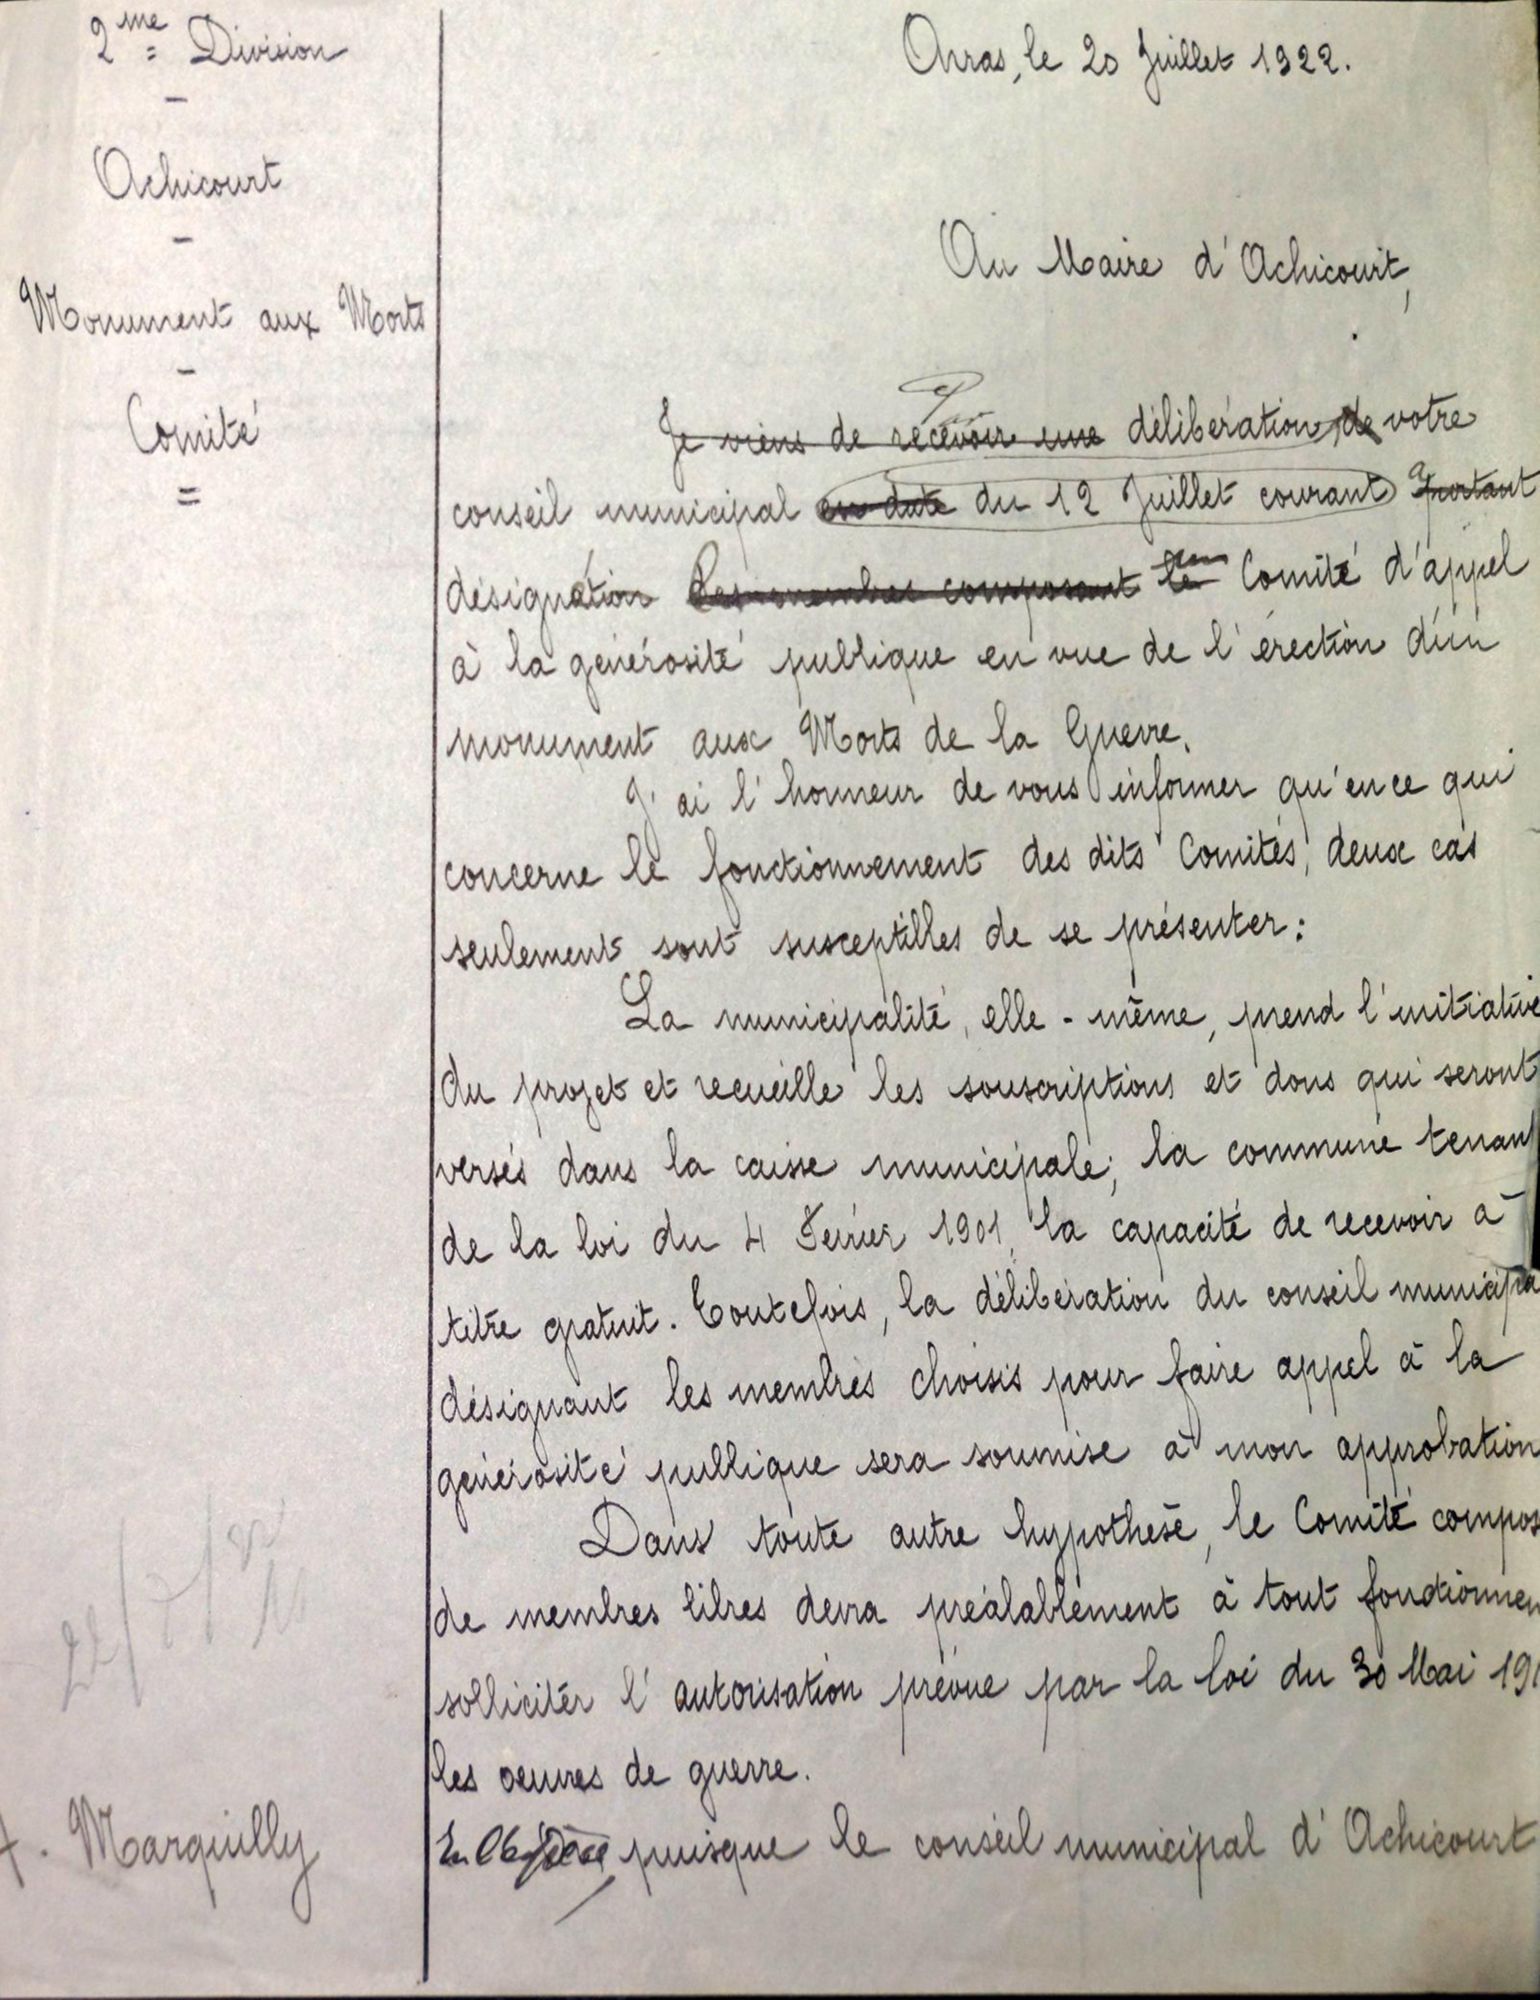 2me Division
Achicourt
Monument aux Morts
Comité
Arras, le 20 Juillet 1922.
Au Maire d'Achicourt,
Je viens de recevoir une délibération de votre
conseil municipal en date du 12 Juillet courant portant
désignation des membres composant le Comité d'appel
à la générosité publique en vue de l'érection d'un
monument aux Morts de la Guerre.
J'ai l'honneur de vous informer qu'en ce qui
concerne le fonctionnement des dits Comités, deux cas
seulement sont susceptibles de se présenter :
La municipalité, elle-même, prend l'initiative
du projet et recueille les souscriptions et dons qui seront
versés dans la caisse municipale; la commune tenant
de la loi du 4 Février 1901, la capacité de recevoir à
titre gratuit. Toutefois, la délibération du conseil municipa
désignant les membres choisis pour faire appel à la
générosité publique sera soumise à mon approbation
Dans toute autre hypothèse, le Comité compos
de membres libres devra préalablement à tout fonctionnem
solliciter l'autorisation prévue par la loi du 30 Mai 191
les oeuvres de guerre.
puisque le conseil municipal d'Achicourt
Marquilly